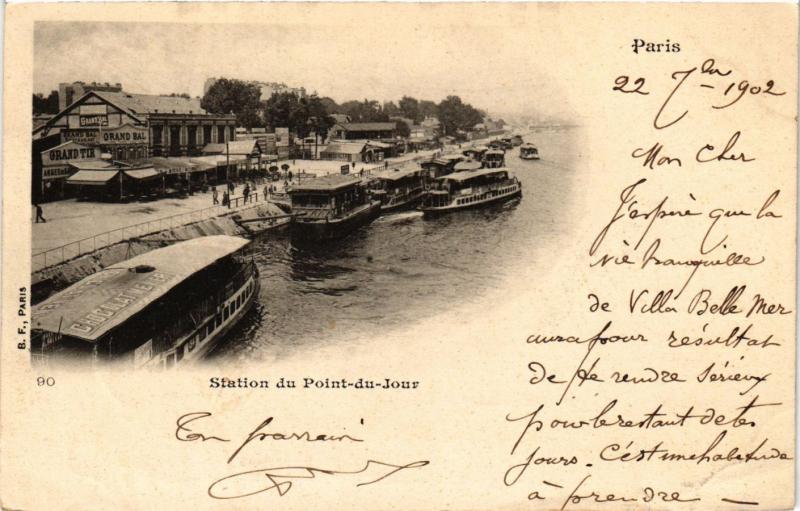 Paris
22 7bre 1902
Mon Cher
J'espère que la
vie tranquille
de Villa Belle Mer
aura pour résultat
de te rendre sérieux
pour le restant de tes
jours. C'est une habitude
à prendre
Ton parrain
GRAND BAL
GRAND BAL
RESTAURANT
GRAND TIR
CHOCOLAT
B. F., PARIS
90
Station du Point-du-Jour